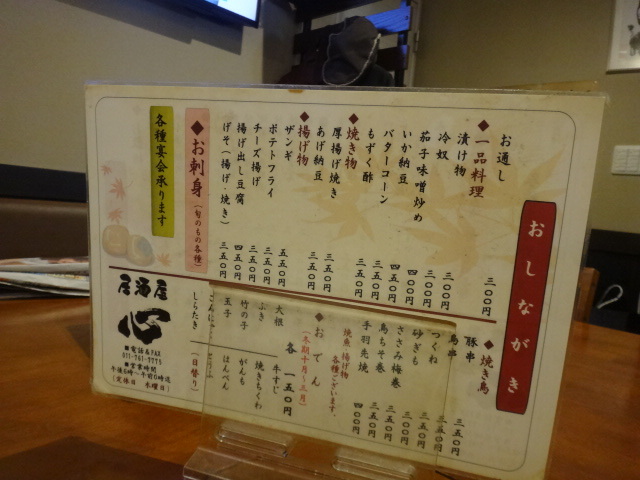 おしながき
お通し 三〇〇円
◆一品料理
漬け物 三〇〇円
冷奴 三〇〇円
茄子味噌炒め 四〇〇円
いか納豆 四五〇円
バターコーン 三五〇円
もずく酢 三五〇円
◆焼き物
厚揚げ焼き 三五〇円
あげ納豆 三五〇円
◆揚げ物
ザンギ 五五〇円
ポテトフライ 三五〇円
チーズ揚げ 三五〇円
揚げ出し豆腐 四五〇円
げそ(揚げ・焼き) 三五〇円
◆お刺身(旬のもの各種)
各種宴会承ります
◆焼き鳥
豚串 三五〇円
鳥串 三五〇円
つくね 三五〇円
砂ぎも 三〇〇円
ささみ梅巻 三五〇円
鳥ちそ巻 三五〇円
手羽先焼 四〇〇円
焼魚、揚げ物
各種ございます。
◆おでん
(冬期十月〜三月)
各 一五〇円
大根 牛すじ
ふき 焼きちくわ
竹の子 がんも
玉子 はんぺん
こんにゃく
しらたき (日替り)
居酒屋
心
■電話&FAX
011-761-7775
■営業時間
午後6時〜午前0時迄
(定休日 水曜日)